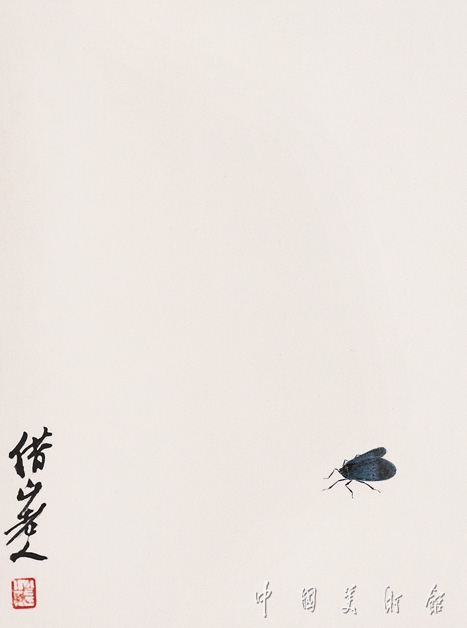 借山老人
中国美术馆